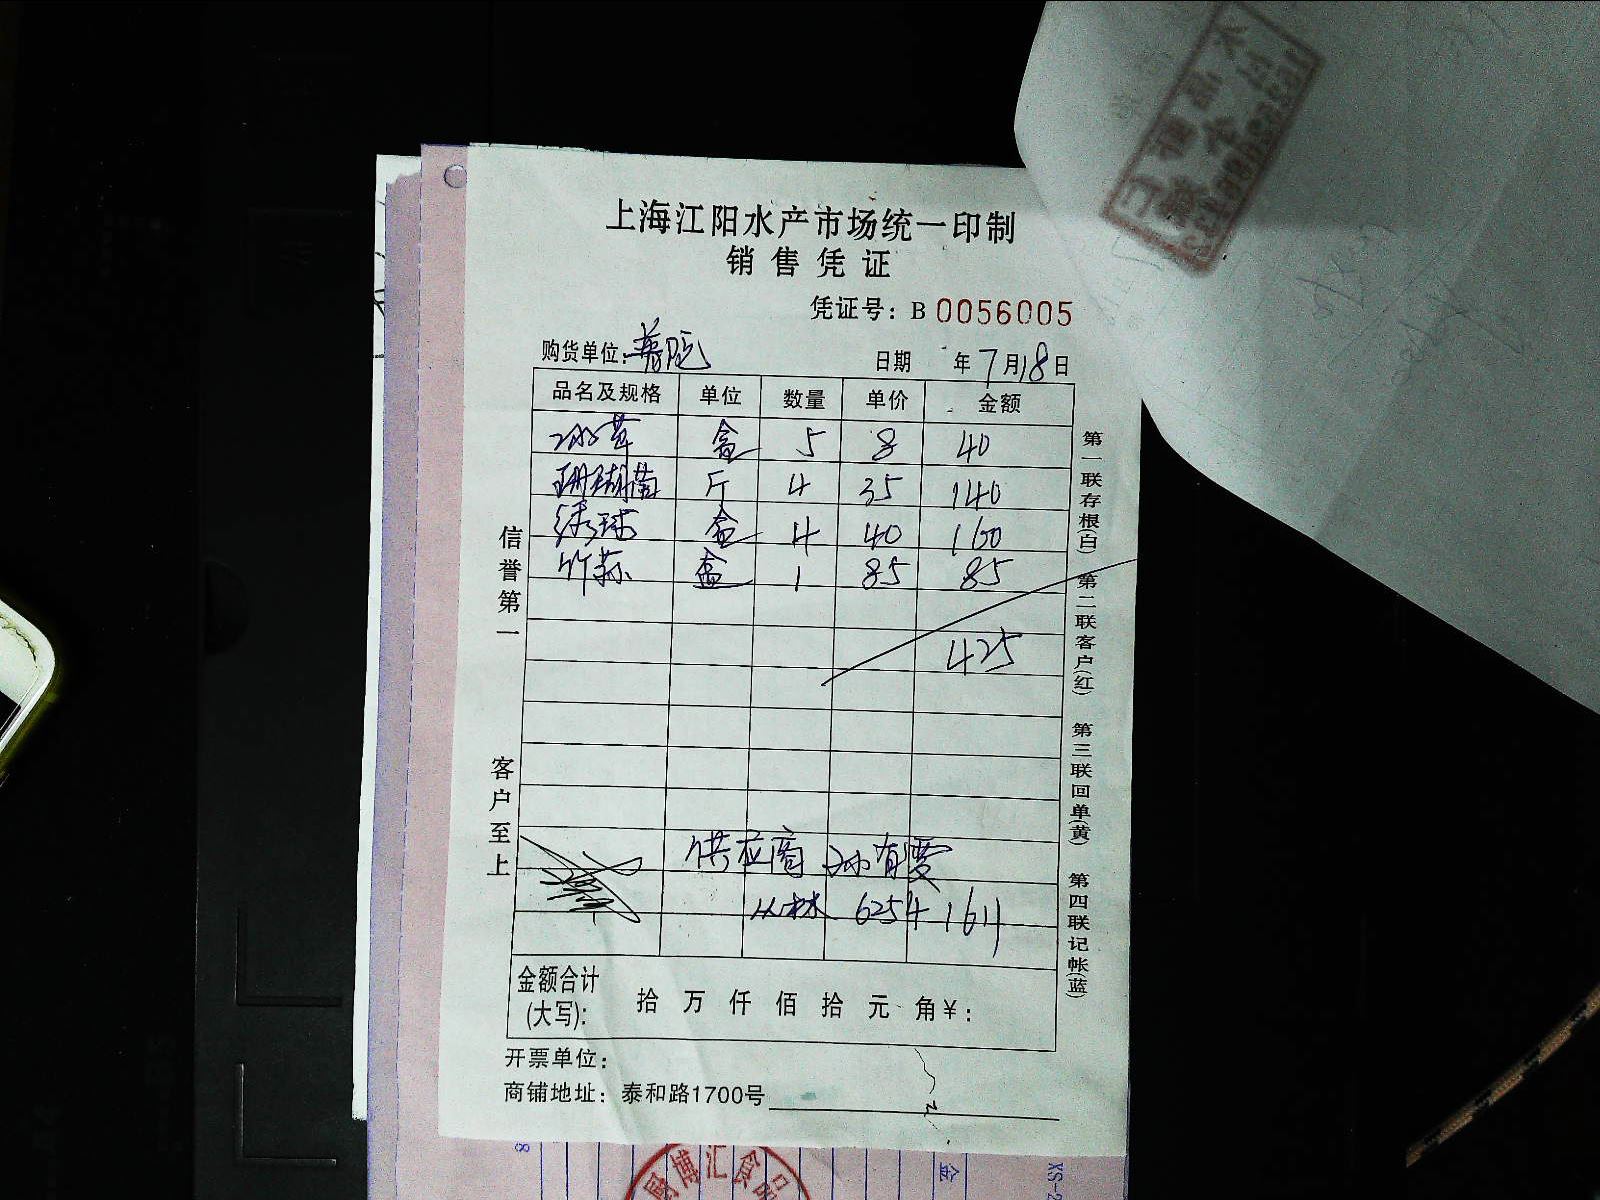 上海江阳水产市场统一印制
销售凭证
凭证号：B 0056005
购货单位：普陀 日期 年7月18日
品名及规格 单位 数量 单价 金额
盒 5 8 40
珊瑚菌 斤 4 35 140
绣球 盒 4 40 160
竹荪 盒 1 85 85
425
供应商 孙有雯
6254 1611
金额合计
(大写): 拾 万 仟 佰 拾 元 角￥:
开票单位:
商铺地址: 泰和路1700号
信誉第一
客户至上
第一联存根(白) 第二联客户(红) 第三联回单(黄) 第四联记帐(蓝)
博汇食品
金